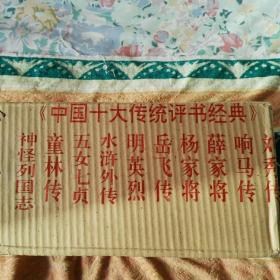 《中国十大传统评书经典》
响马传
薛家将
杨家将
岳飞传
明英烈
水浒外传
五女七贞
童林传
神怪列国志